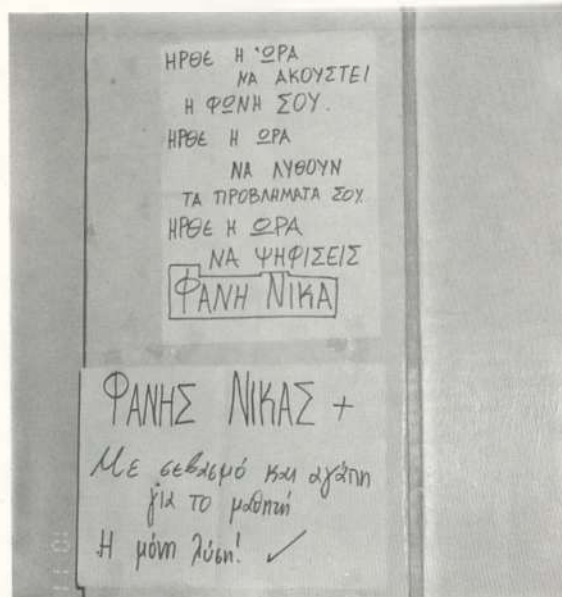 ΗΡΘΕ Η ΩΡΑ
ΝΑ ΑΚΟΥΣΤΕΙ
Η ΦΩΝΗ ΣΟΥ.
ΗΡΘΕ Η ΩΡΑ
ΝΑ ΛΥΘΟΥΝ
ΤΑ ΠΡΟΒΛΗΜΑΤΑ ΣΟΥ.
ΗΡΘΕ Η ΩΡΑ
ΝΑ ΨΗΦΙΣΕΙΣ
ΦΑΝΗ ΝΙΚΑ
ΦΑΝΗΣ ΝΙΚΑΣ +
Με σεβασμό και αγάπη
για το μαθητή
Η μόνη λύση! ✓